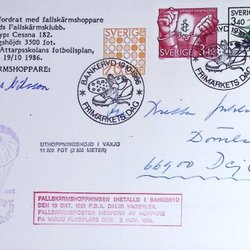 fordrat med fallskärmshoppare
s Fallskärmsklubb.
typ: Cessna 182.
ningshöjd 3300 fot.
Attarpsskolans fotbollsplan,
19/10 1986.
KÄRMSHOPPARE:
SVERIGE
SVERIGE
SVERIGE
340
BANKERYD 19.10.1986
FRIMÄRKETS DAG
BANKERYD 19.10.1986
FRIMÄRKETS DAG
UTHOPPNINGSHÖJD I VÄXJÖ
11 000 FOT (3 300 METER)
66900 De
FALLSKÄRMSHOPPNINGEN INSTÄLLD I BANKERYD
DEN 19 OKT. 1986 P.G.A. DÅLIG VÄDERLEK.
FALLSKÄRMSPOSTEN MEDFÖRD AV HOPPARE
PÅ VÄXJÖ FLYGPLATS DEN 2 NOV. 1986.